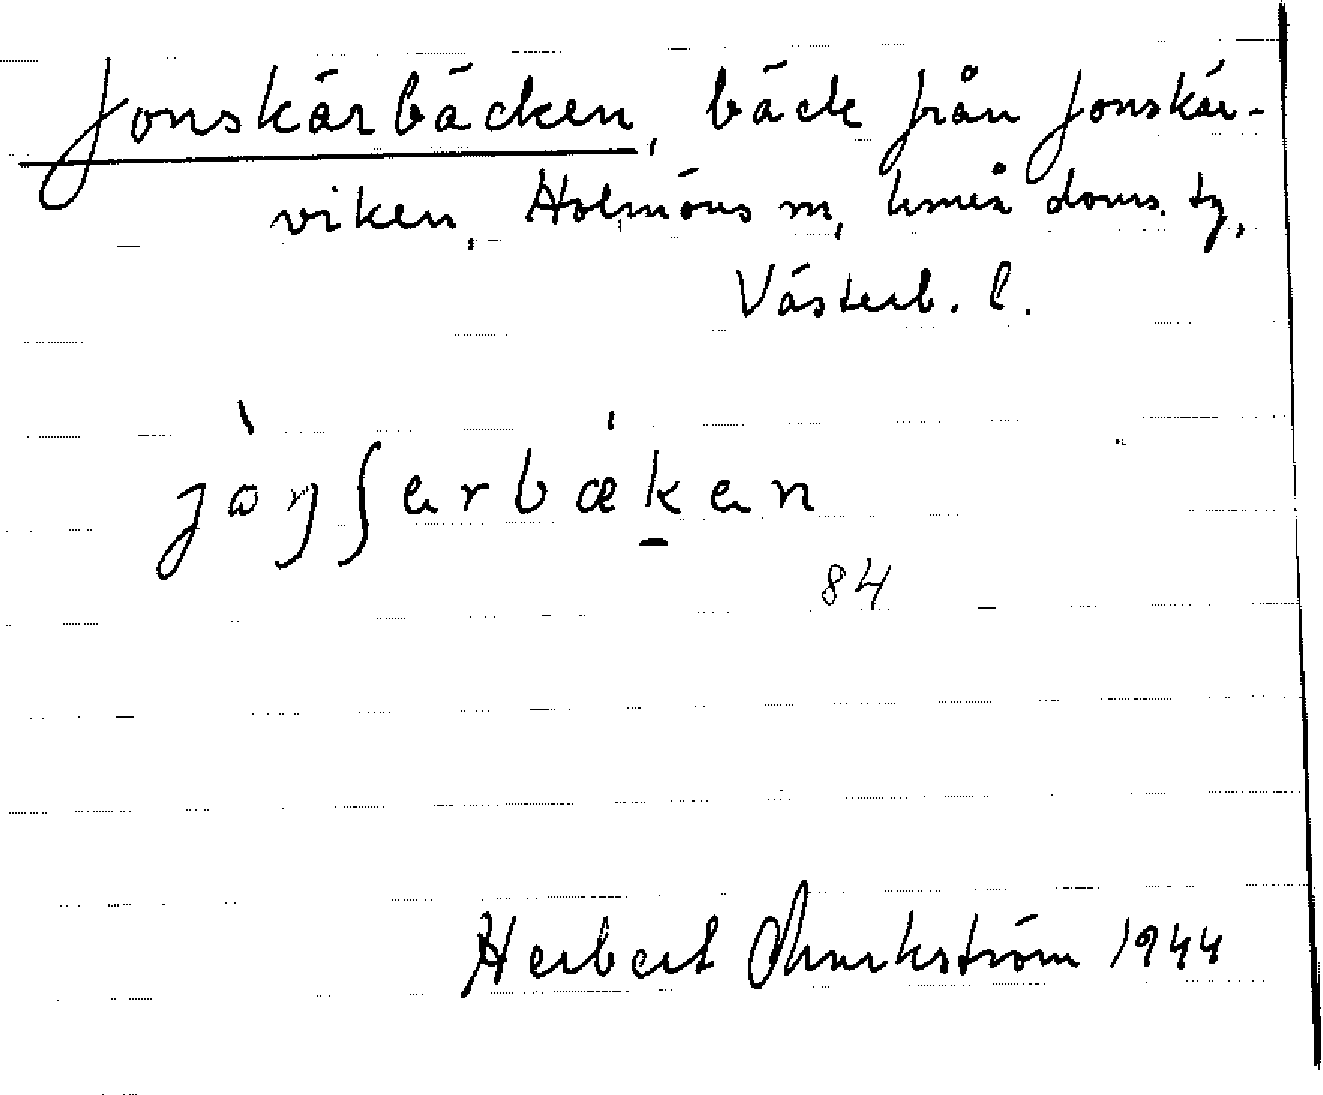 Jonskärbäcken, bäck från Jonskär-
viken, Holmöns m, Umeå doms. tg,
Västerb. l.
84
Herbert Markström 1944